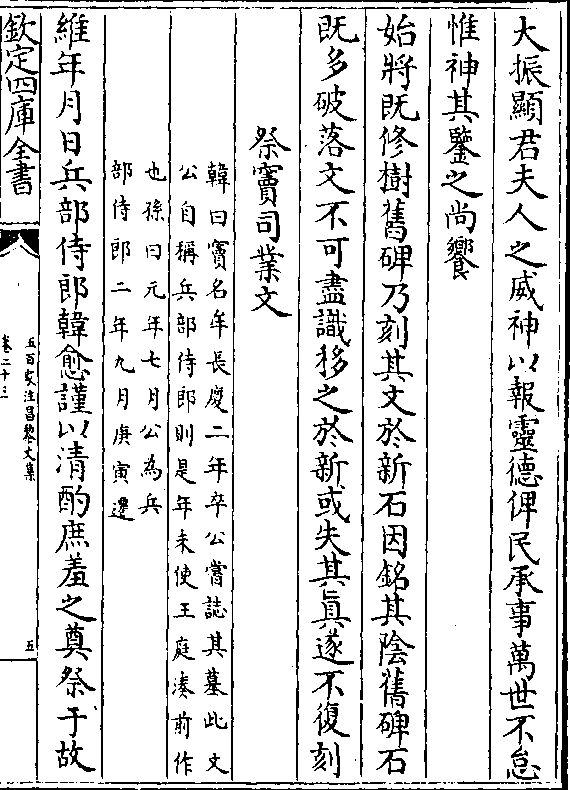 大振顯君夫人之威神以報靈德俾民承事萬世不怠
惟神其鑒之尚饗
始將既修樹舊碑乃刻其文於新石因銘其陰舊碑石
既多破落文不可盡識移之於新或失其眞遂不復刻
祭竇司業文
韓曰竇名牟長慶二年卒公嘗誌其墓此文
公自稱兵部侍郎則是年未使王庭湊前作
也孫曰元年七月公為兵
部侍郎二年九月庚寅遷
維年月日兵部侍郎韓愈謹以清酌庶羞之奠祭于故
欽定四庫全書
五百家注昌黎文集
卷二十三
五